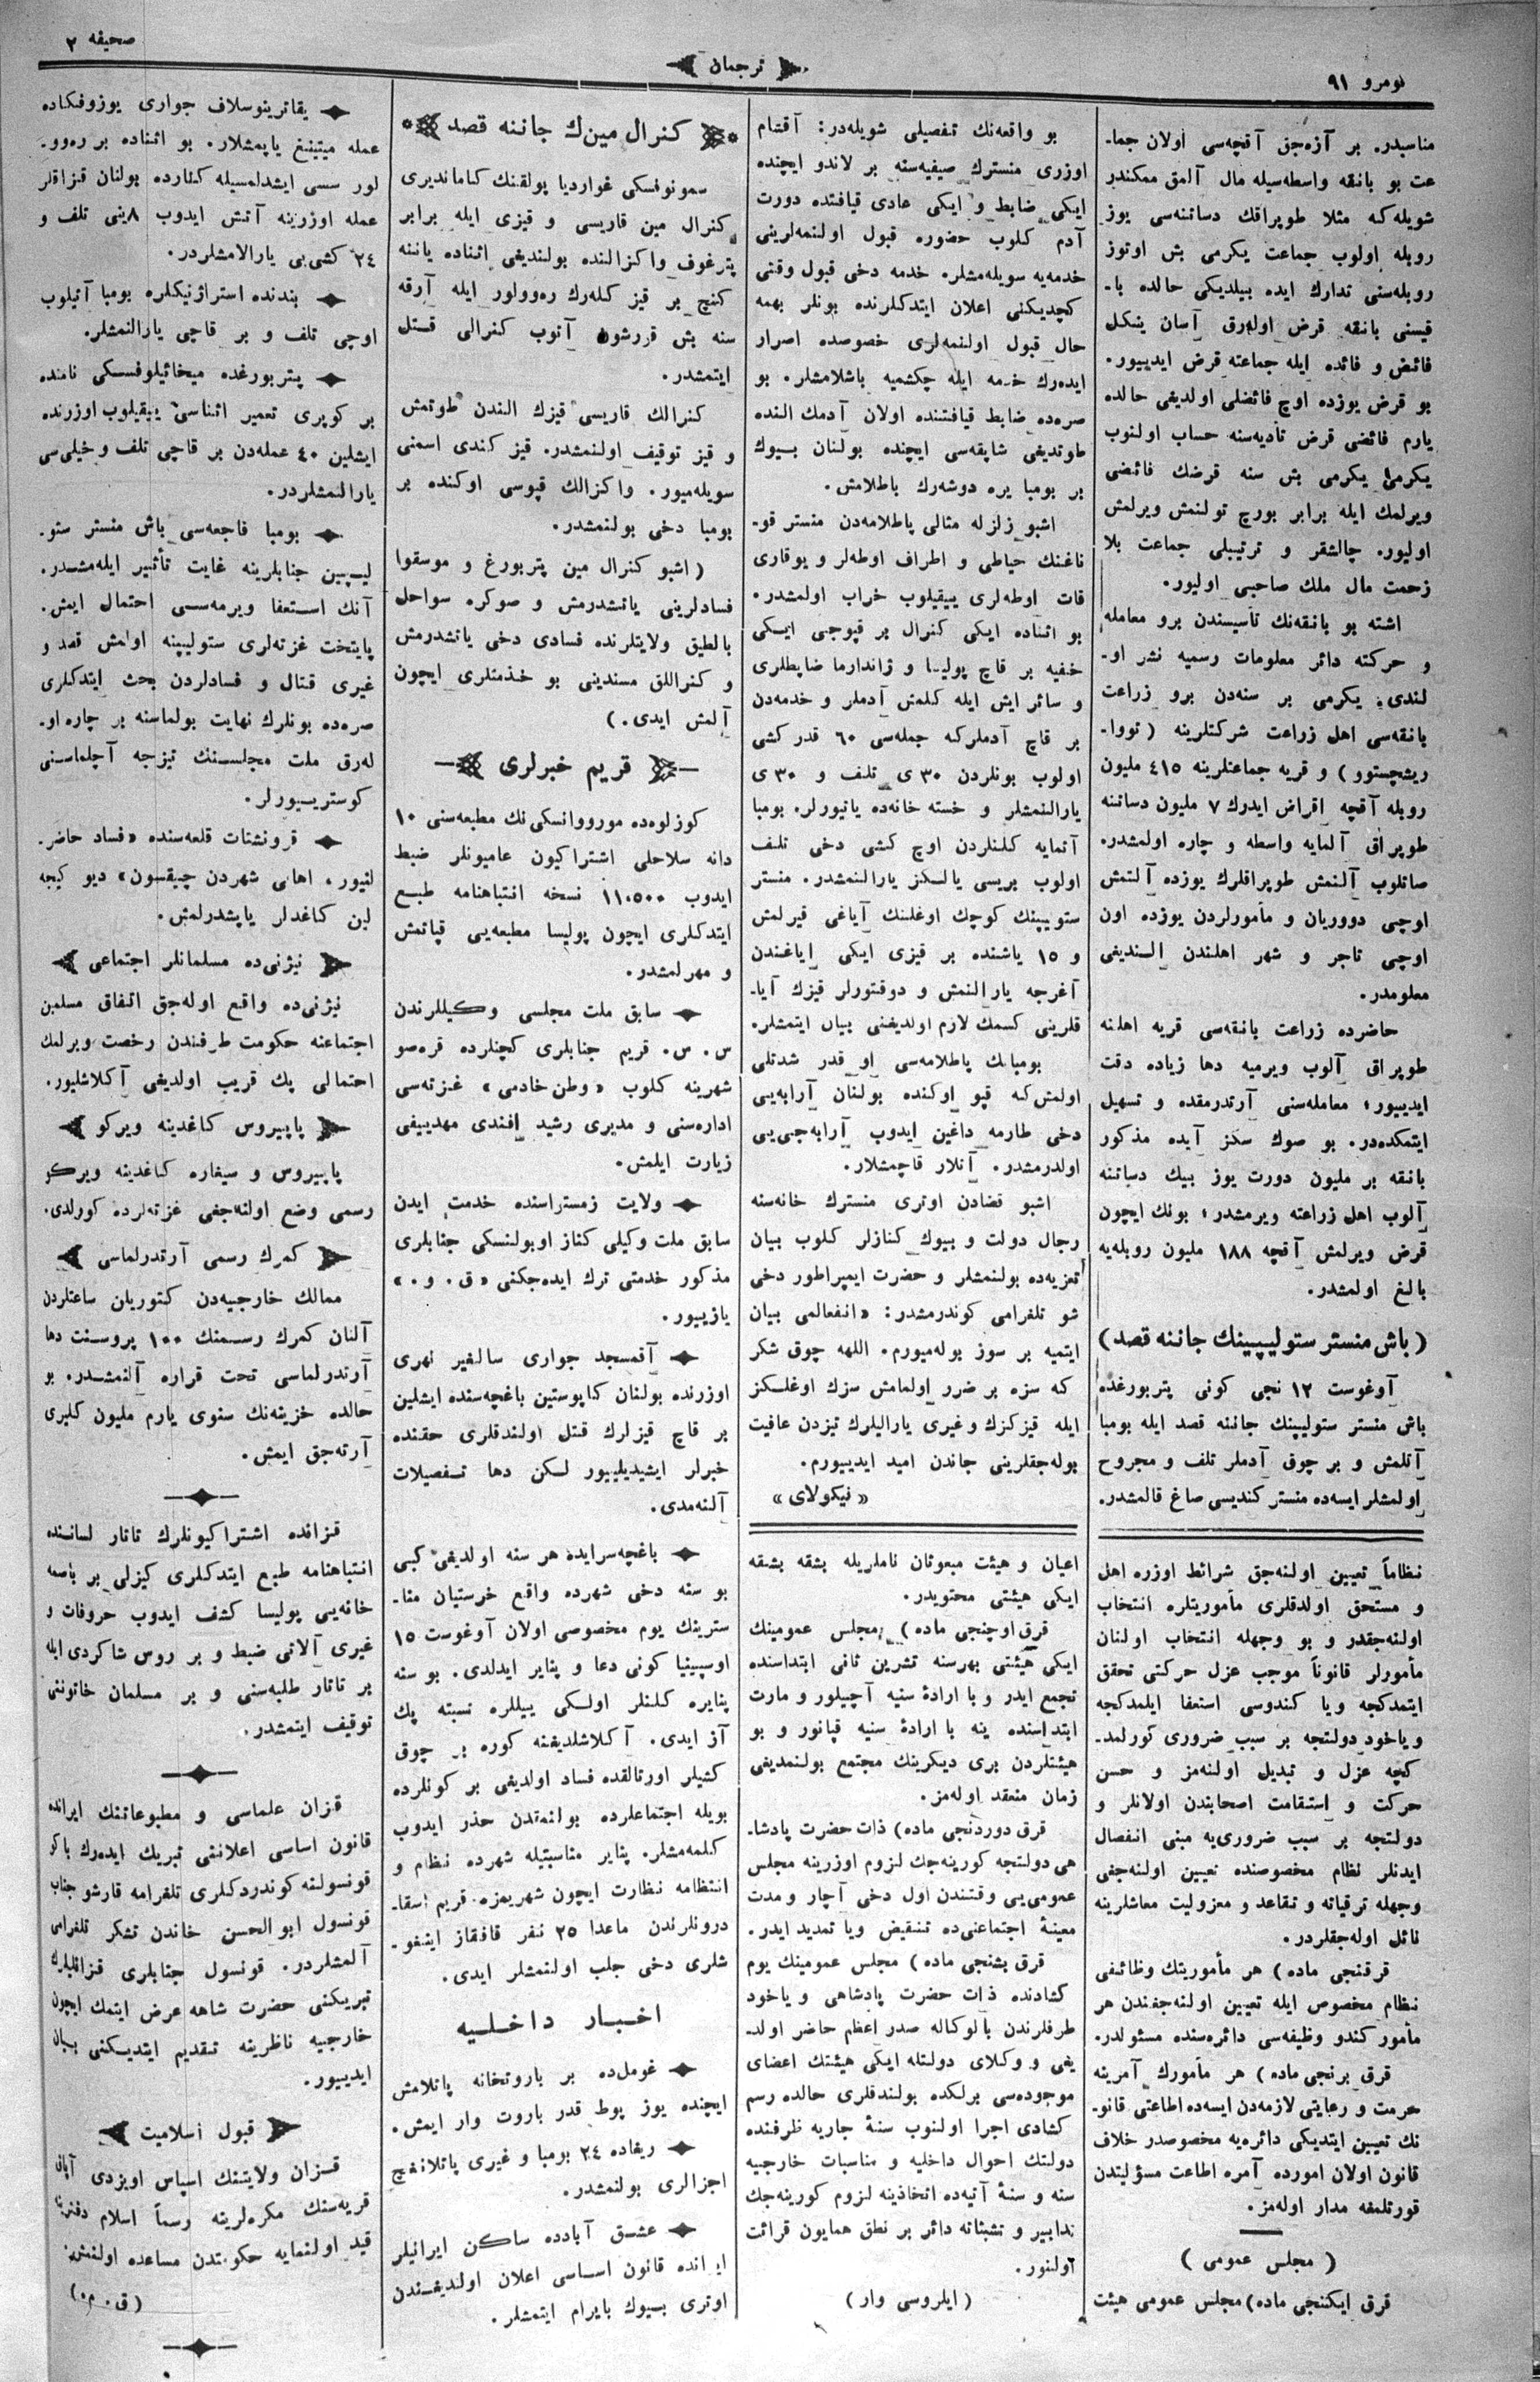 نومرو ٩١
ترجمان
صحیفه ٢
مناسبدر. بر آزه‌جق آقچه‌سی اولان جما-
عت بو بانقه واسطه‌سیله مال آلمق ممکندر
شویله‌که مثلا طوپراقك دساتنه‌سی یوز
روبله اولوب جماعت یکرمی بش اوتوز
روبله‌سنی تدارك ایده بیلدیکی حالده با-
قیسنی بانقه قرض اوله‌رق آسان ینکل
فائض و فائده ایله جماعته قرض ایدییور.
بو قرض یوزده اوچ فائضلی اولدیغی حالده
یارم فائضی قرض تأدیه‌سنه حساب اولنوب
یکرمی یکرمی بش سنه قرضك فائضی
ویرلمك ایله برابر بورچ تولنمش ویرلمش
اولیور. چالشقر و ترتیبلی جماعت بلا
زحمت مال ملك صاحبی اولیور.
اشته بو بانقه‌نك تأسیسندن برو معامله
و حرکته دائر معلومات رسمیه نشر او-
لندی. یکرمی بر سنه‌دن برو زراعت
بانقه‌سی اهل زراعت شرکتلرینه (تووا-
ریشچستوو) و قریه جماعتلرینه ٤١٥ ملیون
روبله آقچه اقراض ایدرك ٧ ملیون دساتنه
طوپراق آلمایه واسطه و چاره اولمشدر.
صاتلوب آلنمش طوپراقلرك یوزده آلتمش
اوچی دووریان و مأمورلردن یوزده اون
اوچی تاجر و شهر اهلندن الندیغی
معلومدر.
حاضرده زراعت بانقه‌سی قریه اهلنه
طوپراق آلوب ویرمیه دها زیاده دقت
ایدییور، معامله‌سنی آرتدرمقده و تسهیل
ایتمکده‌در. بو صوك سکز آیده مذکور
بانقه بر ملیون دورت یوز بیك دساتنه
آلوب اهل زراعته ویرمشدر، بونك ایچون
قرض ویرلمش آقچه ١٨٨ ملیون روبله‌یه
بالغ اولمشدر.
(باش منستر ستولیپینك جاننه قصد)
آوغوست ١٢ نجی کونی پتربورغده
باش منستر ستولیپنك جاننه قصد ایله بومبا
آتلمش و بر چوق آدملر تلف و مجروح
اولمشلر ایسه‌ده منستر کندیسی صاغ قالمشدر.
نظاماً تعیین اولنه‌جق شرائط اوزره اهل
و مستحق اولدقلری مأموریتلره انتخاب
اولنه‌جقدر و بو وجهله انتخاب اولنان
مأمورلر قانوناً موجب عزل حرکتی تحقق
ایتمدکجه ویا کندوسی استعفا ایلمدکجه
ویاخود دولتجه بر سبب ضروری کورلمد-
کچه عزل و تبدیل اولنه‌مز و حسن
حرکت و استقامت اصحابندن اولانلر و
دولتجه بر سبب ضروری‌یه مبنی انفصال
ایدنلر نظام مخصوصنده تعیین اولنه‌جغی
وجهله ترقیاته و تقاعد و معزولیت معاشلرینه
نائل اوله‌جقلردر.
قرقنجی ماده) هر مأموریتك وظائفی
نظام مخصوص ایله تعیین اولنه‌جغندن هر
مأمور کندو وظیفه‌سی دائره‌سنده مسئولدر.
قرق برنجی ماده) هر مأمورك آمرینه
حرمت و رعایتی لازمه‌دن ایسه‌ده اطاعتی قانو-
نك تعیین ایتدیکی دائره‌یه مخصوصدر خلاف
قانون اولان امورده آمره اطاعت مسؤلیتدن
قورتلمغه مدار اوله‌مز.
(مجلس عمومی)
قرق ایکنجی ماده) مجلس عمومی هیئت
بو واقعه‌نك تفصیلی شویله‌در: آقشام
اوزری منسترك صیفیه‌سنه بر لاندو ایچنده
ایکی ضابط و ایکی عادی قیافتده دورت
آدم کلوب حضوره قبول اولنمه‌لرینی
خدمه‌یه سویله‌مشلر. خدمه دخی قبول وقتی
کچدیکنی اعلان ایتدکلرنده بونلر بهمه
حال قبول اولنمه‌لری خصوصده اصرار
ایده‌رك خدمه ایله چکشمیه باشلامشلر. بو
صره‌ده ضابط قیافتنده اولان آدمك النده
طوتدیغی شاپقه‌سی ایچنده بولنان بیوك
بر بومبا یره دوشه‌رك باطلامش.
اشبو زلزله مثالی پاطلامه‌دن منستر قو-
ناغنك حیاطی و اطراف اوطه‌لر و یوقاری
قات اوطه‌لری ییقیلوب خراب اولمشدر.
بو اثناده ایکی کنرال بر قپوجی ایکی
خفیه بر قاچ پولیسا و ژاندارما ضابطلری
و سائر ایش ایله کلمش آدملر و خدمه‌دن
بر قاچ آدملرکه جمله‌سی ٦٠ قدر کشی
اولوب بونلردن ٣٠ ی تلف و ٣٠ ی
یارالنمشلر و خسته خانه‌ده یاتیورلر. بومبا
آتمایه کلنلردن اوچ کشی دخی تلف
اولوب بریسی یالکز یارالنمشدر. منستر
ستوپیینك کوچك اوغلنك آیاغی قیرلمش
و ١٥ یاشنده بر قیزی ایکی ایاغندن
آغرجه یارالنمش و دوقتورلر قیزك آیا-
قلرینی کسمك لازم اولدیغنی بیان ایتمشلر.
بومبانك پاطلامه‌سی او قدر شدتلی
اولمش‌که قپو اوکنده بولنان آرابه‌یی
دخی طارمه داغین ایدوب آرابه‌جی‌یی
اولدرمشدر. آتلار قاچمشلار.
اشبو قضادن اوتری منسترك خانه‌سنه
رجال دولت و بیوك کنازلر کلوب بیان
تعزیه‌ده بولنمشلر و حضرت ایمپراطور دخی
شو تلغرامی کوندرمشدر: «انفعالمی بیان
ایتمیه بر سوز بوله‌میورم. اللهه چوق شکر
که سزه بر ضرر اولمامش سزك اوغلکز
ایله قیزکزك و غیری یارالیلرك تیزدن عافیت
بوله‌جقلرینی جاندن امید ایدییورم.
«نیکولای»
اعیان و هیئت مبعوثان ناملریله بشقه بشقه
ایکی هیئتی محتویدر.
قرق اوچنجی ماده) مجلس عمومینك
ایکی هیئتی بهرسنه تشرین ثانی ابتداسنده
تجمع ایدر و با ارادۀ سنیه آچیلور و مارت
ابتداسنده ینه با ارادۀ سنیه قپانور و بو
هیئتلردن بری دیکرینك مجتمع بولنمدیغی
زمان منعقد اوله‌مز.
قرق دوردنجی ماده) ذات حضرت پادشا-
هی دولتجه کورینه‌جك لزوم اوزرینه مجلس
عمومی‌یی وقتندن اول دخی آچار و مدت
معینۀ اجتماعنی‌ده تنقیص ویا تمدید ایدر.
قرق بشنجی ماده) مجلس عمومینك یوم
کشادنده ذات حضرت پادشاهی ویاخود
طرفلرندن بالوکاله صدر اعظم حاضر اولد-
یغی و وکلای دولتله ایکی هیئتك اعضای
موجوده‌سی برلکده بولندقلری حالده رسم
کشادی اجرا اولنوب سنۀ جاریه ظرفنده
دولتك احوال داخلیه و مناسبات خارجیه
سنه و سنۀ آتیه‌ده اتخاذینه لزوم کورینه‌جك
تدابیر و تشبثاته دائر بر نطق همایون قرائت
اولنور.
(ایلروسی وار)
کنرال مین‌ك جاننه قصد
سمونوفسکی غواردیا پولقنك کاماندیری
کنرال مین قاریسی و قیزی ایله برابر
پترغوف واکزالنده بولندیغی اثناده یاننه
کنچ بر قیز کله‌رك ره‌وولور ایله آرقه
سنه بش قورشون آتوب کنرالی قتل
ایتمشدر.
کنرالك قاریسی قیزك الندن طوتمش
و قیز توقیف اولنمشدر. قیز کندی اسمنی
سویله‌میور. واکزالك قپوسی اوکنده بر
بومبا دخی بولنمشدر.
(اشبو کنرال مین پتربورغ و موسقوا
فسادلرینی یاتشدرمش و صوکره سواحل
بالطیق ولایتلرنده فسادی دخی یاتشدرمش
و کنراللق مسندینی بو خذمتلری ایچون
آلمش ایدی.)
قریم خبرلری
کوزلوه‌ده مورووانسکی‌نك مطبعه‌سنی ١٠
دانه سلاحلی اشتراکیون عامیونلر ضبط
ایدوب ١١٠٥٠٠ نسخه انتباهنامه طبع
ایتدکلری ایچون پولیسا مطبعه‌یی قپاتمش
و مهرلمشدر.
سابق ملت مجلسی وکیللرندن
س. س. قریم جنابلری کچنلرده قره‌صو
شهرینه کلوب «وطن خادمی» غزته‌سی
اداره‌سنی و مدیری رشید افندی مهدییفی
زیارت ایلمش.
ولایت زمستراسنده خدمت ایدن
سابق ملت وکیلی کناز اوبولنسکی جنابلری
مذکور خدمتی ترك ایده‌جکنی «ق. و.»
یازییور.
آقمسجد جواری سالغیر نهری
اوزرنده بولنان کاپوستین باغچه‌سنده ایشلین
بر قاچ قیزلرك قتل اولندقلری حقنده
خبرلر ایشیدیلییور لکن دها تفصیلات
آلنه‌مدی.
باغچه‌سرایده هر سنه اولدیغی کبی
بو سنه دخی شهرده واقع خرستیان منا-
سترینك یوم مخصوصی اولان آوغوست ١٥
اوسپینیا کونی دعا و پنایر ایدلدی. بو سنه
پنایره کلنلر اولکی ییللره نسبته پك
آز ایدی. آکلاشلدیغنه کوره بر چوق
کشیلر اورتالقده فساد اولدیغی بر کونلرده
بویله اجتماعلرده بولنمقدن حذر ایدوب
کلمه‌مشلر. پنایر مناسبتیله شهرده نظام و
انتظامه نظارت ایچون شهریمزه قریم اسقا-
درونلرندن ماعدا ٢٥ نفر قافقاز اینغو-
شلری دخی جلب اولنمشلر ایدی.
اخبار داخلیه
غومل‌ده بر باروتخانه پاتلامش
ایچنده یوز پوط قدر باروت وار ایمش.
ریغاده ٢٤ بومبا و غیری پاتلانغچ
اجزالری بولنمشدر.
عشق آبادده ساکن ایرانیلر
ایرانده قانون اساسی اعلان اولندیغندن
اوتری بیوك بایرام ایتمشلر.
یقاترینوسلاف جواری یوزوفکاده
عمله میتینغ یاپمشلار. بو اثناده بر ره‌وو-
لور سسی ایشدلمسیله کنارده بولنان قزاقلر
عمله اوزرینه آتش ایدوب ٨ینی تلف و
٢٤ کشی‌یی یارالامشلردر.
بندنده استراژنیکلره بومبا آتیلوب
اوچی تلف و بر قاچی یارالنمشلر.
پتربورغده میخائیلوفسکی نامنده
بر کوپری تعمیر اثناسی ییقیلوب اوزرنده
ایشلین ٤٠ عمله‌دن بر قاچی تلف و خیلی‌سی
یارالنمشلردر.
بومبا فاجعه‌سی باش منستر ستو-
لیپین جنابلرینه غایت تأثیر ایله‌مشدر.
آنك استعفا ویرمه‌سی احتمال ایمش.
پایتخت غزته‌لری ستولیپینه اولمش قصد و
غیری قتال و فسادلردن بحث ایتدکلری
صره‌ده بونلرك نهایت بولماسنه بر چاره او-
له‌رق ملت مجلسنك تیزجه آچلماسنی
کوسترییورلر.
قرونشتات قلعه‌سنده «فساد حاضر-
لنیور، اهالی شهردن چیقسون» دیو کیجه
لین کاغدلر یاپشدرلمش.
نیژنی‌ده مسلمانلر اجتماعی
نیژنی‌ده واقع اوله‌جق اتفاق مسلمین
اجتماعنه حکومت طرفندن رخصت ویرلمك
احتمالی پك قریب اولدیغی آکلاشلیور.
پاپیروس کاغدینه ویرکو
پاپیروس و سیغاره کاغدینه ویرکو
رسمی وضع اولنه‌جغی غزته‌لرده کورلدی.
کمرك رسمی آرتدرلماسی
ممالك خارجیه‌دن کتوریلن ساعتلردن
آلنان کمرك رسمنك ١٠٠ پروسنت دها
آرتدرلماسی تحت قراره آلنمشدر. بو
حالده خزینه‌نك سنوی یارم ملیون کلیری
آرته‌جق ایمش.
قزانده اشتراکیونلرك تاتار لسانده
انتباهنامه طبع ایتدکلری کیزلی بر باصمه
خانه‌یی پولیسا کشف ایدوب حروفات و
غیری آلاتی ضبط و بر روس شاکردی ایله
بر تاتار طلبه‌سنی و بر مسلمان خاتوننی
توقیف ایتمشدر.
قزان علماسی و مطبوعاتنك ایرانده
قانون اساسی اعلاننی تبریك ایده‌رك باکو
قونسولنه کوندردکلری تلغرامه قارشو جناب
قونسول ابو الحسن خاندن تشکر تلغرامی
آلمشلردر. قونسول جنابلری قزانلیلرك
تبریکنی حضرت شاهه عرض ایتمك ایچون
خارجیه ناظرینه تقدیم ایتدیکنی بیان
ایدییور.
قبول اسلامیت
قزان ولایتنك اسپاس اویزدی
قریه‌سنك مکره‌لرینه رسماً اسلام دفترینه
قید اولنمایه حکومتدن مساعده اولنمش.
(ق. م.)